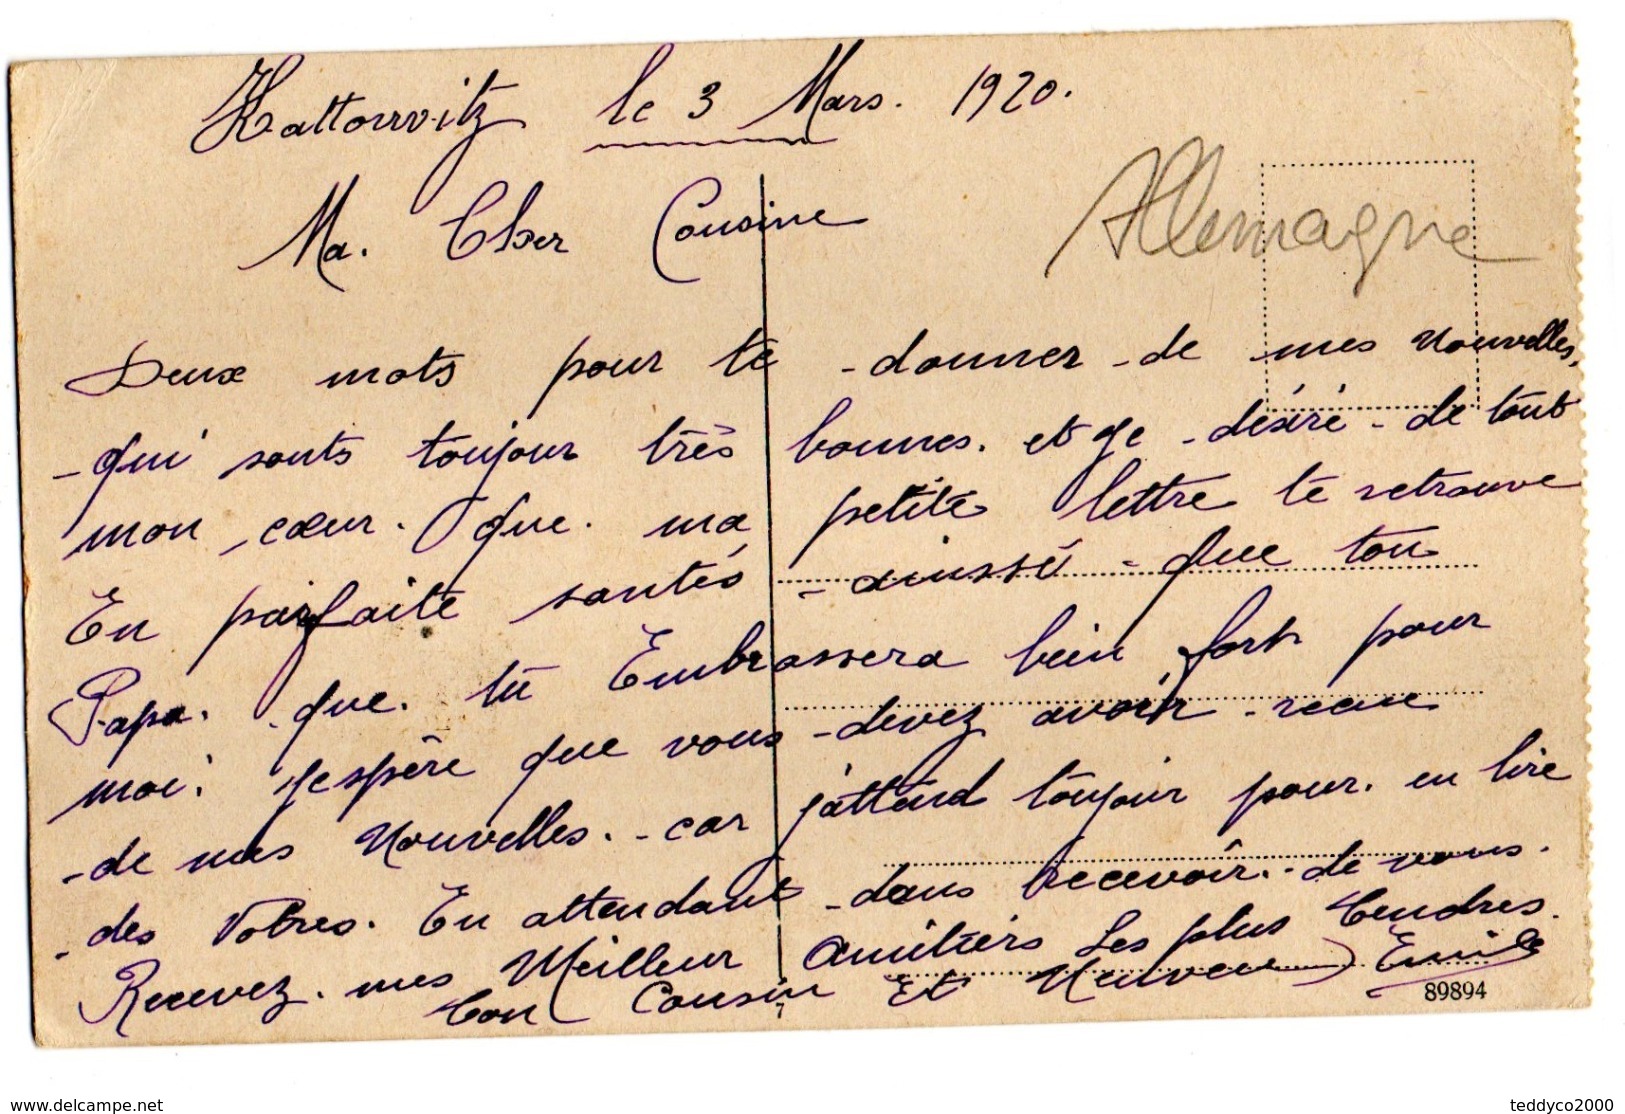 Kattowitz le 3 Mars. 1920.
Allemagne
Ma. Cher Cousine
Deux mots pour te donner de mes nouvelles,
qui sonts toujour très bonnes. et je désire de tout
mon cœur. que. ma petite lettre te retrouve
En parfaite santés ainssi que ton
Papa. que. tu Embrassera bein fort pour
moi. J'espère que vous devez avoir recu
de mes Nouvelles. car j'attend toujour pour. en lire
des Votres. En attendant dans recevoir. de vous.
Recevez. mes Meilleur amitiers Les plus tendres.
ton Cousin Et Neuveu Emile
89894
www.delcampe.net
teddyco2000